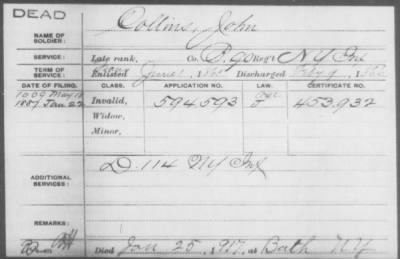 DEAD
NAME OF SOLDIER: Collins, John
SERVICE: Late rank, Co. D. 90 Reg't NY Inf
TERM OF SERVICE: Enlisted June 1865 Discharged Feby 9, 1866
DATE OF FILING. CLASS. APPLICATION NO. LAW. CERTIFICATE NO.
1887 Jan 22 Invalid, 594593 453,932
Widow,
Minor,
ADDITIONAL SERVICES: D. 114 NY Inf
REMARKS:
Died Jan 25, 1917, at Bath NY